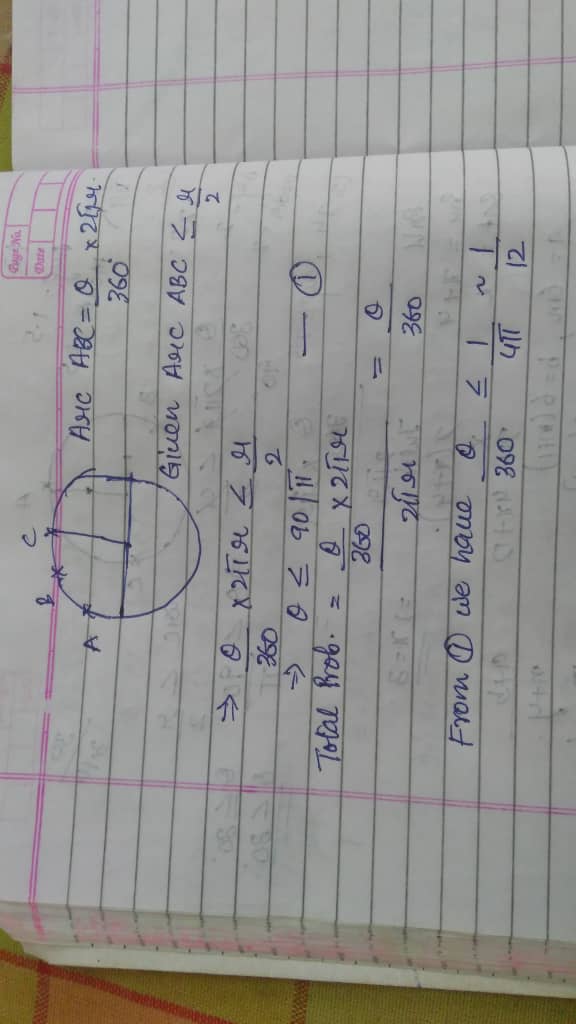 Page No.
Date
A
B
C
Arc ABC = θ/360° × 2πr.
Given Arc ABC ≤ r/2
⇒ θ/360 × 2πr ≤ r/2
⇒ θ ≤ 90/π — ①
Total Prob. = (θ/360 × 2πr)/2πr = θ/360
From ① we have θ/360 ≤ 1/4π ~ 1/12